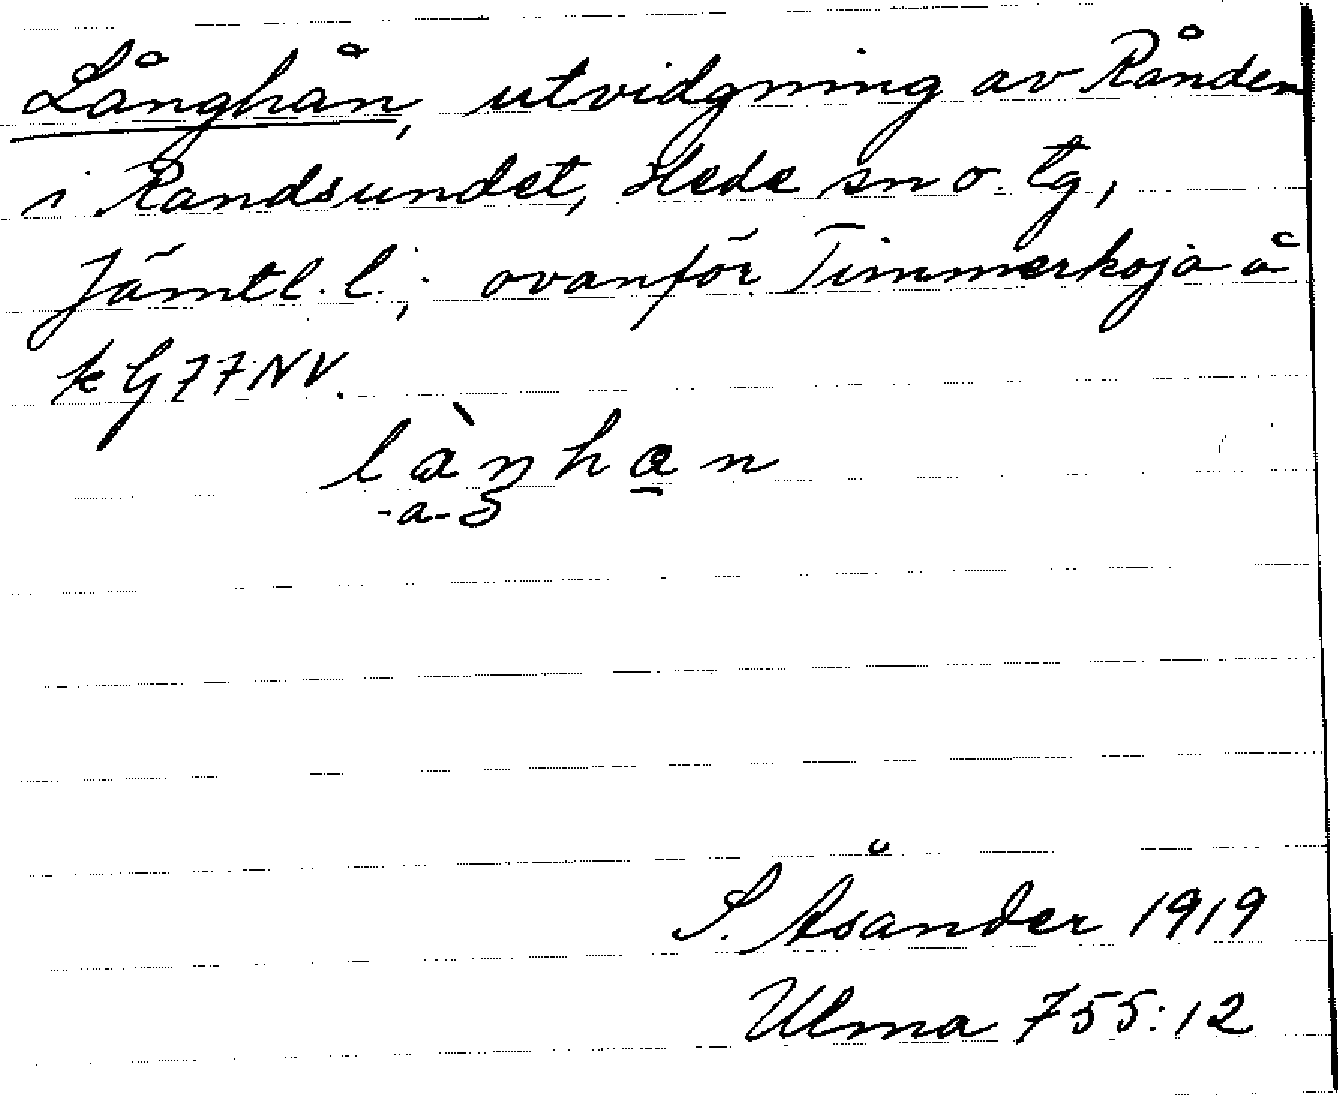 Långhån, utvidgning av Rånden
i Randsundet, Hede sn o. tg,
Jämtl. l.; ovanför Timmerkoja å
k G77NV.
lànhan
-a-
S. Åsander 1919
Ulma 755:12